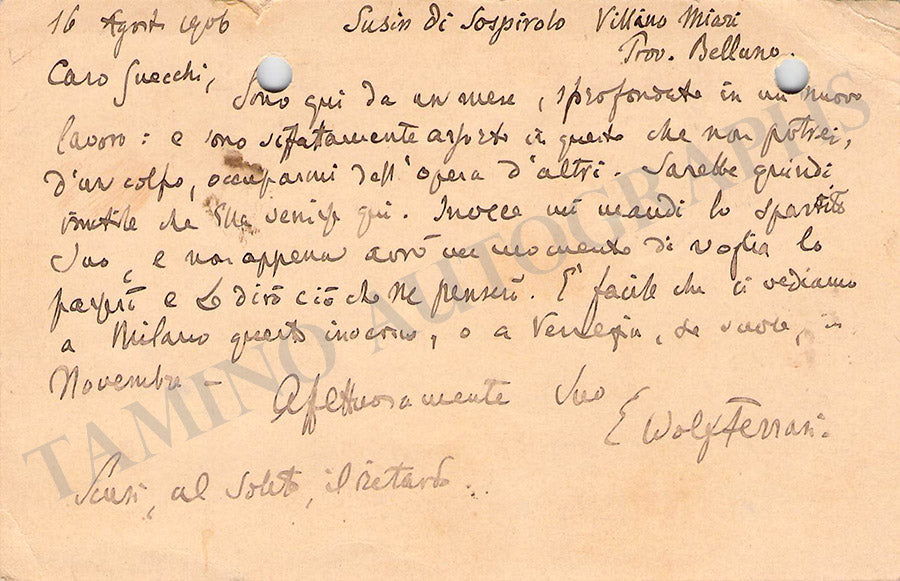 16 Agosto 1906 Susin di Sospirolo Villino Miari
Prov. Belluno.
Caro Guecchi,
Sono qui da un mese, sprofondato in un nuovo
lavoro: e sono siffattamente assorto in questo che non potrei,
d'un colpo, occuparmi dell'opera d'altri. Sarebbe quindi
inutile che Ella venisse qui. Invece mi mandi lo spartito
Suo, e non appena avrò un momento di voglia lo
e Le dirò ciò che ne penserò. È facile che ci vediamo
a Milano questo inverno, o a Venezia, se vuole, in
Novembre –
Affettuosamente Suo
E Wolf Ferrari.
Scusi, al solito, il ritardo...
TAMINO AUTOGRAPHS